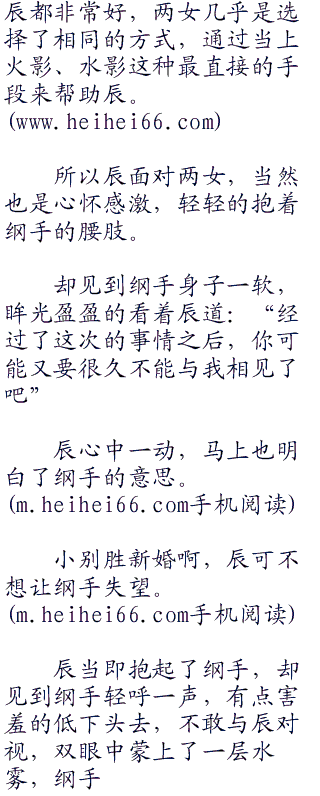 辰都非常好，两女几乎是选
择了相同的方式，通过当上
火影、水影这种最直接的手
段来帮助辰。
(www.heihei66.com)
所以辰面对两女，当然
也是心怀感激，轻轻的抱着
纲手的腰肢。
却见到纲手身子一软，
眸光盈盈的看着辰道：“经
过了这次的事情之后，你可
能又要很久不能与我相见了
吧”
辰心中一动，马上也明
白了纲手的意思。
(m.heihei66.com手机阅读)
小别胜新婚啊，辰可不
想让纲手失望。
(m.heihei66.com手机阅读)
辰当即抱起了纲手，却
见到纲手轻呼一声，有点害
羞的低下头去，不敢与辰对
视，双眼中蒙上了一层水
雾，纲手